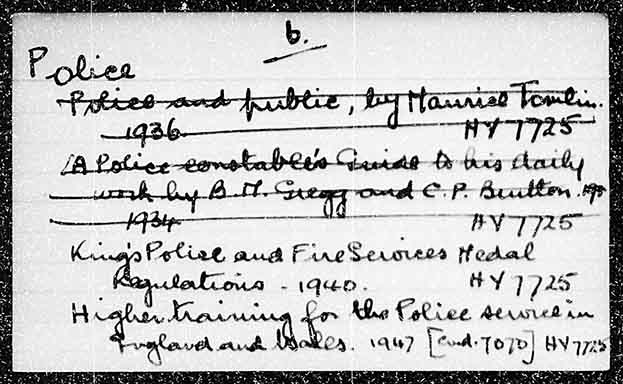 6.
Police
Police and public, by Maurice Tomlin.
1936 HV 7725
A Police constable's Guide to his daily
work by B. M. Gregg and C. P. Brutton.
1934 HV 7725
King's Police and Fire Services Medal
Regulations - 1940. HV 7725
Higher training for the Police service in
England and Wales. 1947 [Cmd. 7070] HV 7725